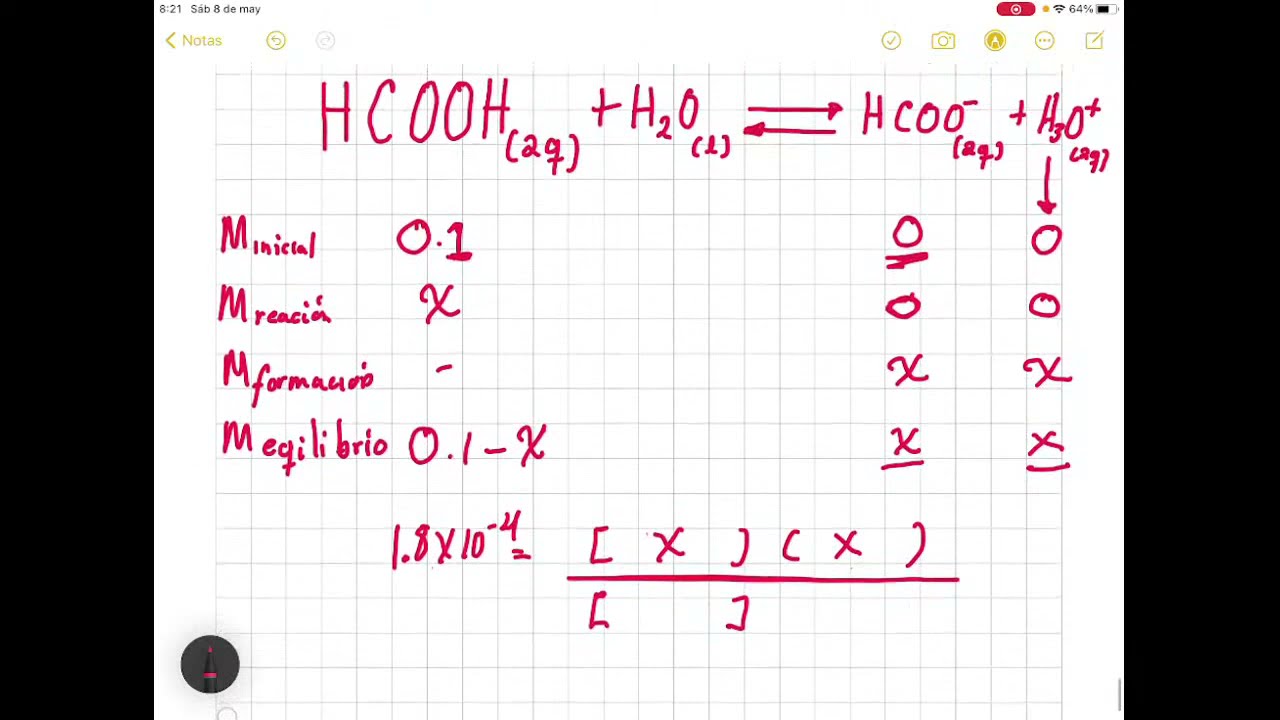 8:21 Sáb 8 de may 64%
Notas
HCOOH(aq) + H₂O(l) ⇌ HCOO⁻(aq) + H₃O⁺(aq)
↓
Minicial 0.1 0 0
Mreación x 0 0
Mformación - x x
Meqilibrio 0.1 - x x x
1.8x10⁻⁴ = [ x ] ( x )
[ ]